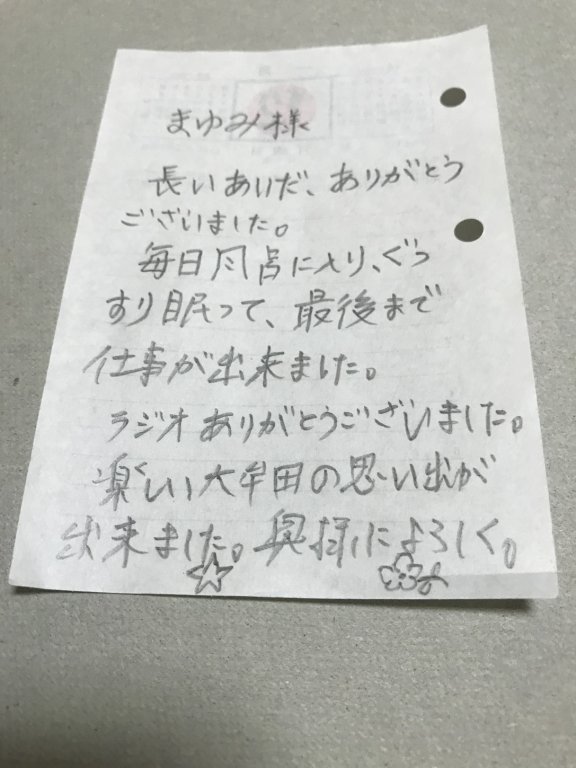 まゆみ様
長いあいだ、ありがとう
ございました。
毎日風呂に入り、ぐっ
すり眠って、最後まで
仕事が出来ました。
ラジオありがとうございました。
楽しい大牟田の思い出が
出来ました。奥様によろしく。